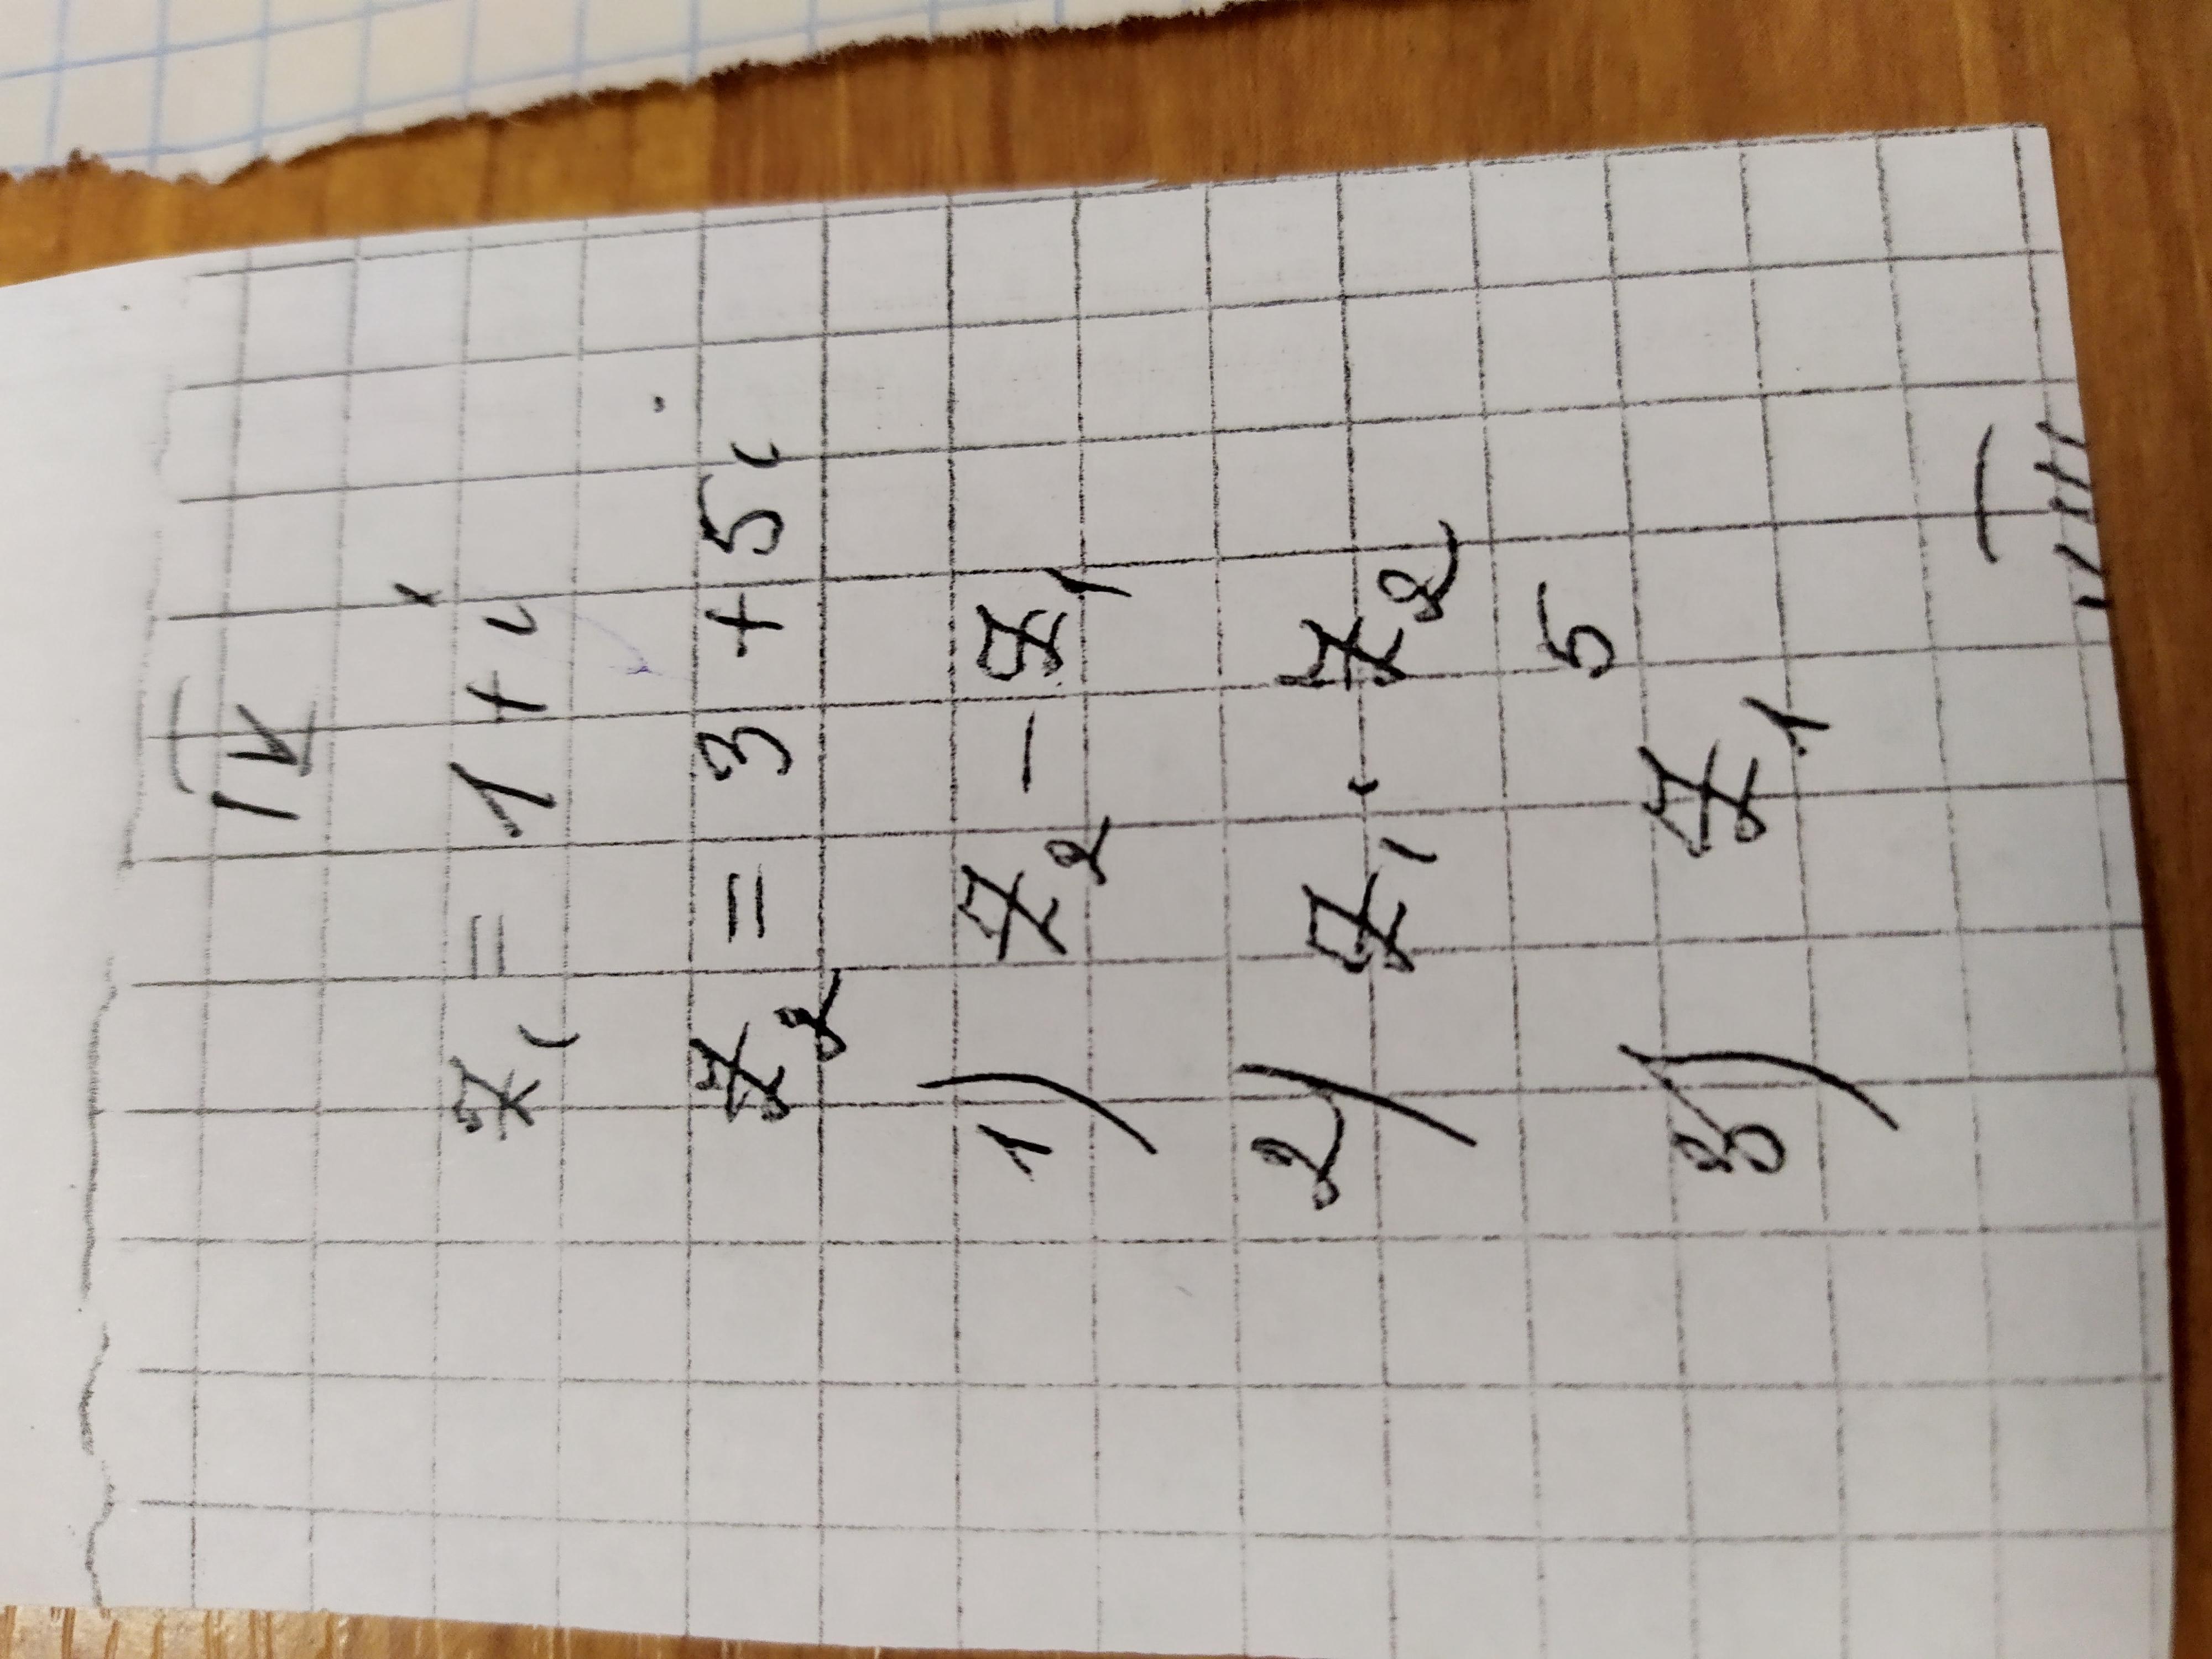 IV
z₁ = 1 + i
z₂ = 3 + 5i
1) z₂ - z₁
2) z₁ · z₂
3) z₁⁵